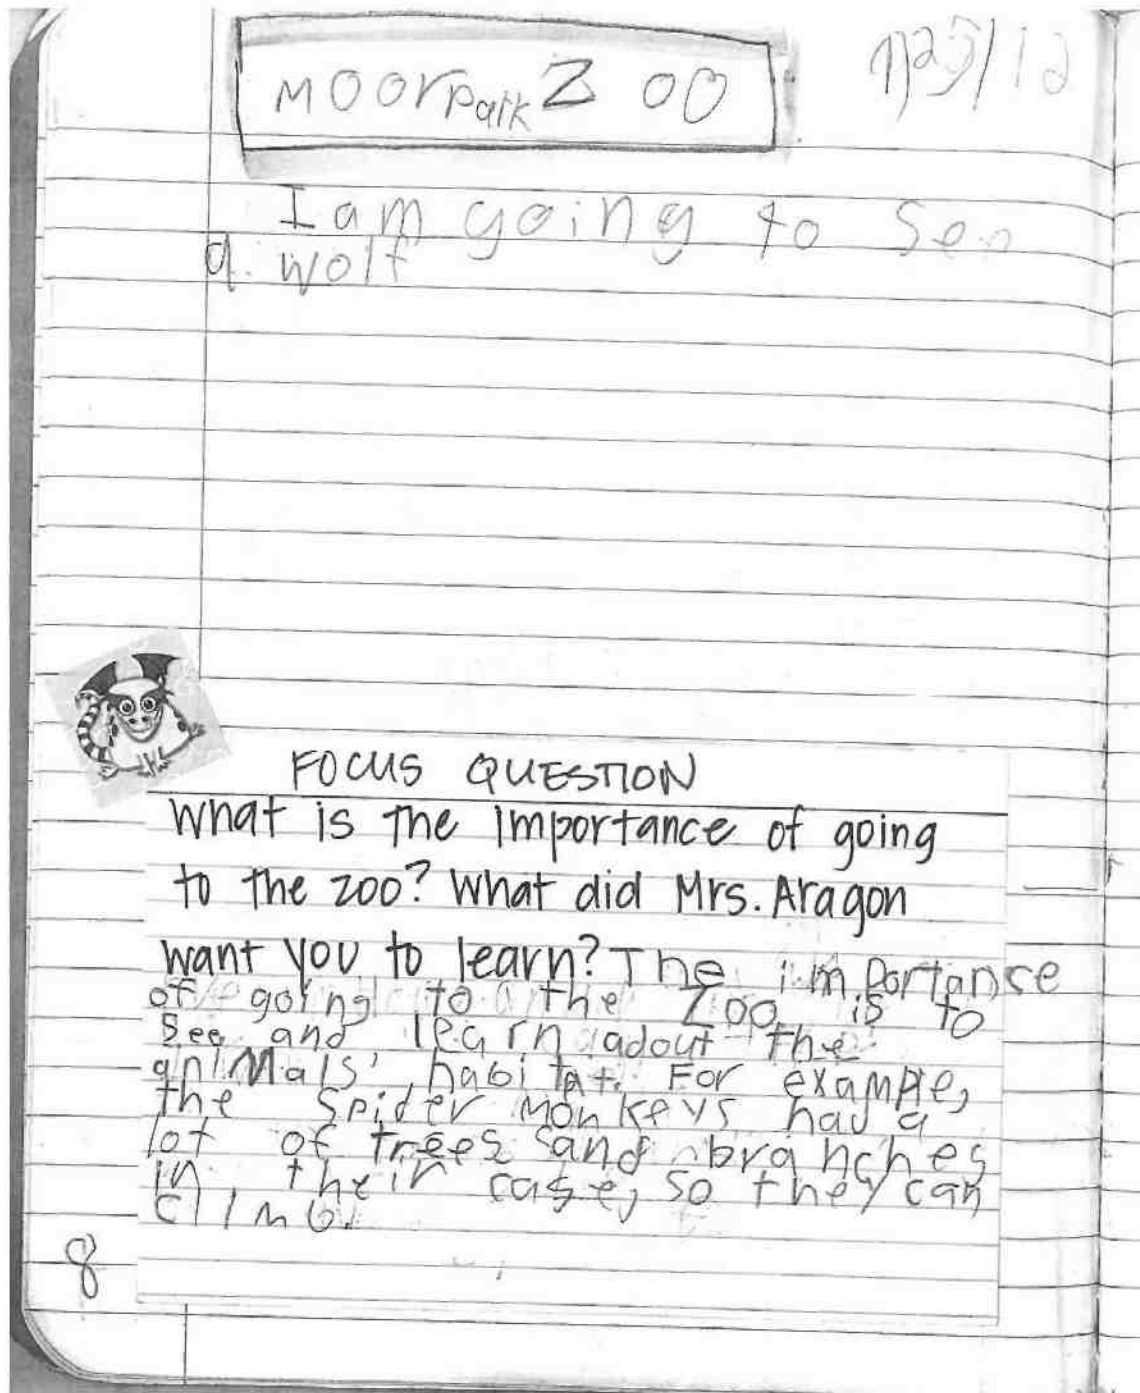 MOOrpark ZOO
1/25/12
I am going to see
a wolf
FOCUS QUESTION
What is the importance of going
to the zoo? What did Mrs. Aragon
want you to learn? The importance
of going to the Zoo is to
see and learn adout the
animals' habitat. For example,
the Spider monkeys had a
lot of trees and branches
in their cage, so they can
climb.
8